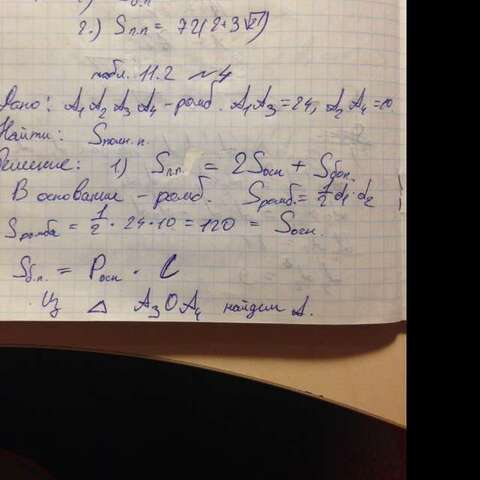 2.) Sп.п = 72(2+3√21)
табл. 11.2 №4
Дано: A₁A₂A₃A₄ - ромб. A₁A₃=24, A₂A₄=10
Найти: Sполн.п.
Решение: 1) Sп.п. = 2Sосн + Sбок.
В основание - ромб. Sромб.= 1/2 d₁·d₂
Sромба = 1/2 · 24·10 = 120 = Sосн.
Sб.п. = Pосн · l
Из △ A₃OA₄ найдем A.